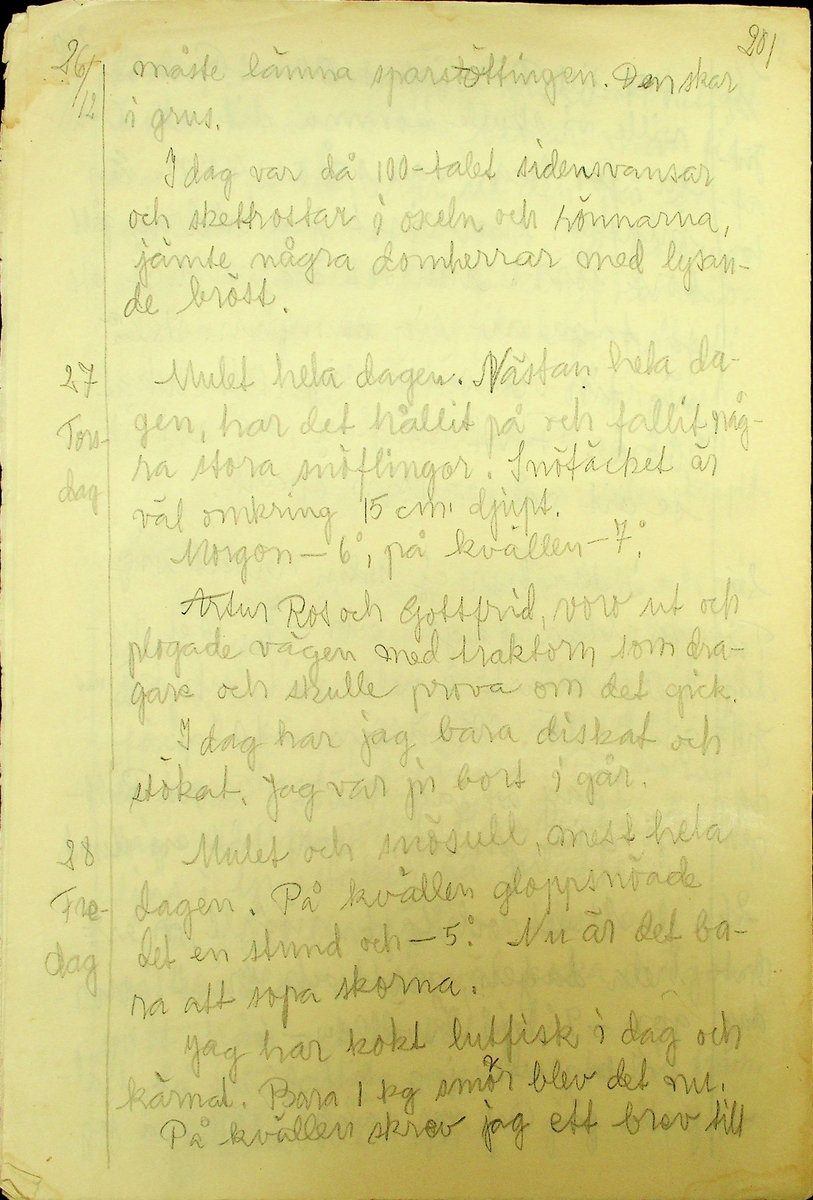 201
26/12 måste lämna sparstöttingen. Den skar
i grus.
I dag var då 100-talet sidensvansar
och skettrostar i oxeln och lönnarna,
jämte några domherrar med lysan-
de bröst.
27 Mulet hela dagen. Nästan hela da-
Tors- gen, har det hållit på och fallit någ-
dag ra stora snöflingor. Snötäcket är
väl omkring 15 cm. djupt.
Morgon – 6°, på kvällen – 7°.
Artur Ros och Gottfrid, voro ut och
plogade vägen med traktorn som dra-
gare och skulle prova om det gick.
I dag har jag bara diskat och
stökat. Jag var ju bort i går.
28 Mulet och snösull, mest hela
Fre- dagen. På kvällen gloppsnöade
dag det en stund och – 5°. Nu är det ba-
ra att sopa skorna.
Jag har kokt lutfisk i dag och
kärnat. Bara 1 kg smör blev det nu.
På kvällen skrev jag ett brev till